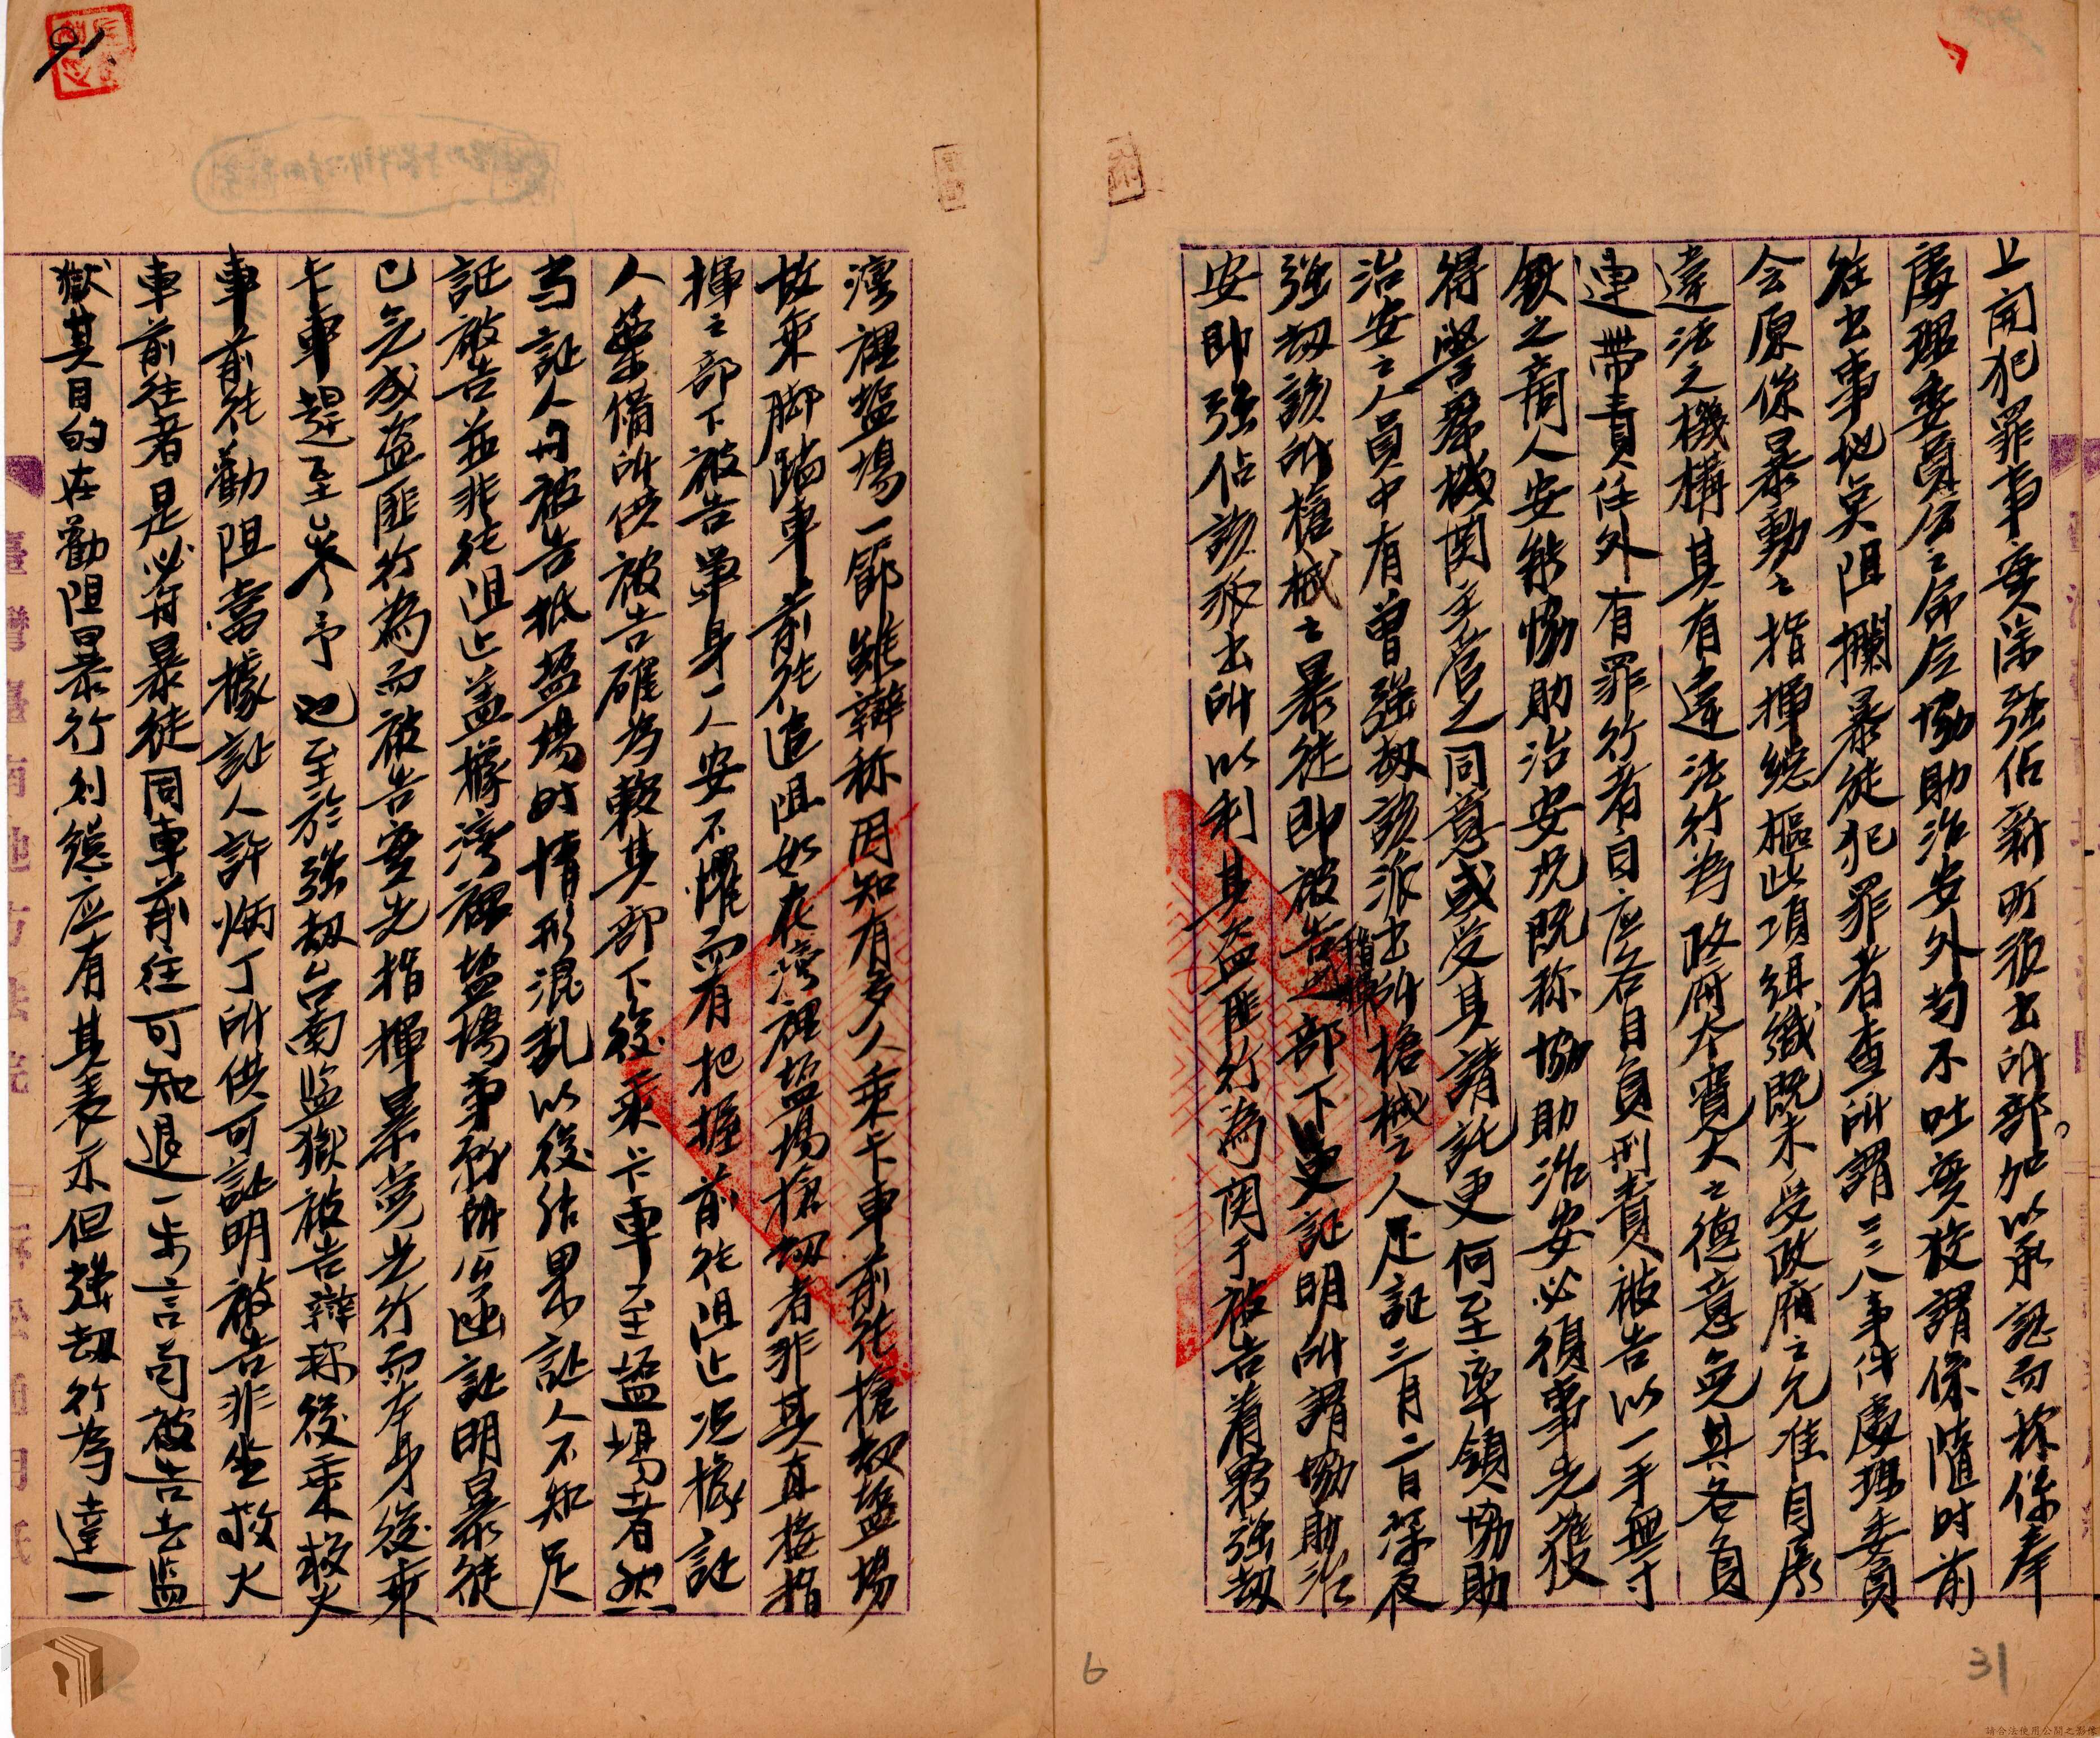 上開犯罪事实除强佔新町派出所部加以承認而称係奉
處理委員会之命令協助治安外均不吐实狡謂係隨时前
往出事地矣阻攔暴徒犯罪者查所謂二二八事件處理委員
会原係暴動之指揮總樞此項組織既未受政府之允准自属
違法之機構其有違法行為政府本寬大之德意免其各負
連帶責任外有罪行者自应各自負刑責被告以一手無寸
鉄之商人安能協助治安况既称協助治安必須事先獲
得警察機関主管之同意或受其請託更何至率領協助
治安之人員中有曾强劫該派出所槍械之人足証三月二日深夜
强劫該所槍械之暴徒即被告指揮之部下更証明所謂協助治
安即强佔該派出所以利其盗匪行為関于被告着夥强劫
湾裡塩場一節雖辯称因知有多人乘卡車前往搶劫塩場
故乘脚踏車前往追阻如在湾裡塩場搶劫者非其直接指
揮之部下被告單身一人安不懼而有把握前往阻止况據証
人葉備所供被告確為較其部下後乘卡車至塩場者然
当証人毋被告抵塩場时情形混乱以後結果証人不知足
証被告並非往阻止盖據湾裡塩場事務所公函証明暴徒
已完成盗匪行為而被告实先指揮暴党先行而本身後乘
卡車趕至参予也至於强劫台南监獄被告辯称後乘救火
車前往勸阻當據証人許炳丁所供可証明被告非坐救火
車前往者是必与暴徒同車前往可知退一步言苟被告去监
獄其目的在勸阻暴行則總应有其表示但强劫行為達一
臺灣臺南地方法院
91
6
31
請合法使用公開之影像